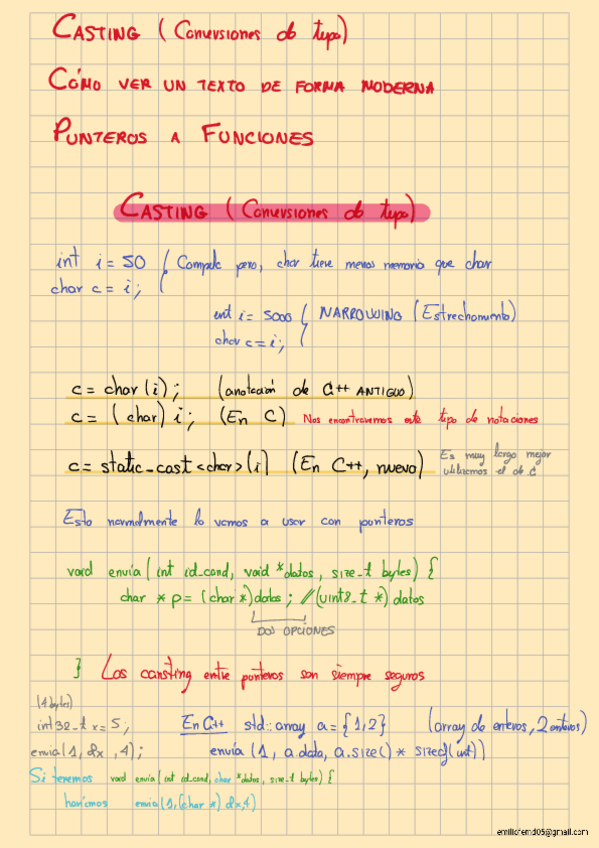 CASTING (Conversiones de tipo)
CÓMO VER UN TEXTO DE FORMA MODERNA
PUNTEROS A FUNCIONES
CASTING (Conversiones de tipo)
int i = 50 { Compila pero, char tiene menos memoria que char
char c = i;
int i = 5000 { NARROWING (Estrechamiento)
char c = i;
c = char (i); (anotación de C++ ANTIGUO)
c = (char) i; (En C) Nos encontraremos este tipo de notaciones
c = static_cast <char> (i) (En C++, nuevo) Es muy largo mejor
utilizamos el de C
Esto normalmente lo vamos a usar con punteros
void envia (int id_cond, void *datos, size_t bytes) {
char * p = (char *) datos; //(uint8_t *) datos
DOS OPCIONES
} Los cansting entre punteros son siempre seguros
(4 bytes)
int32_t x = 5; En C++ std::array a = {1,2} (array de enteros, 2 enteros)
envia (1, &x, 4); envía (1, a.data, a.size() * sizeof(int))
Si tenemos void envia (int id_cond, char *datos, size_t bytes) {
haríamos envia (1, (char *) &x, 4)
emiliofernd05@gmail.com